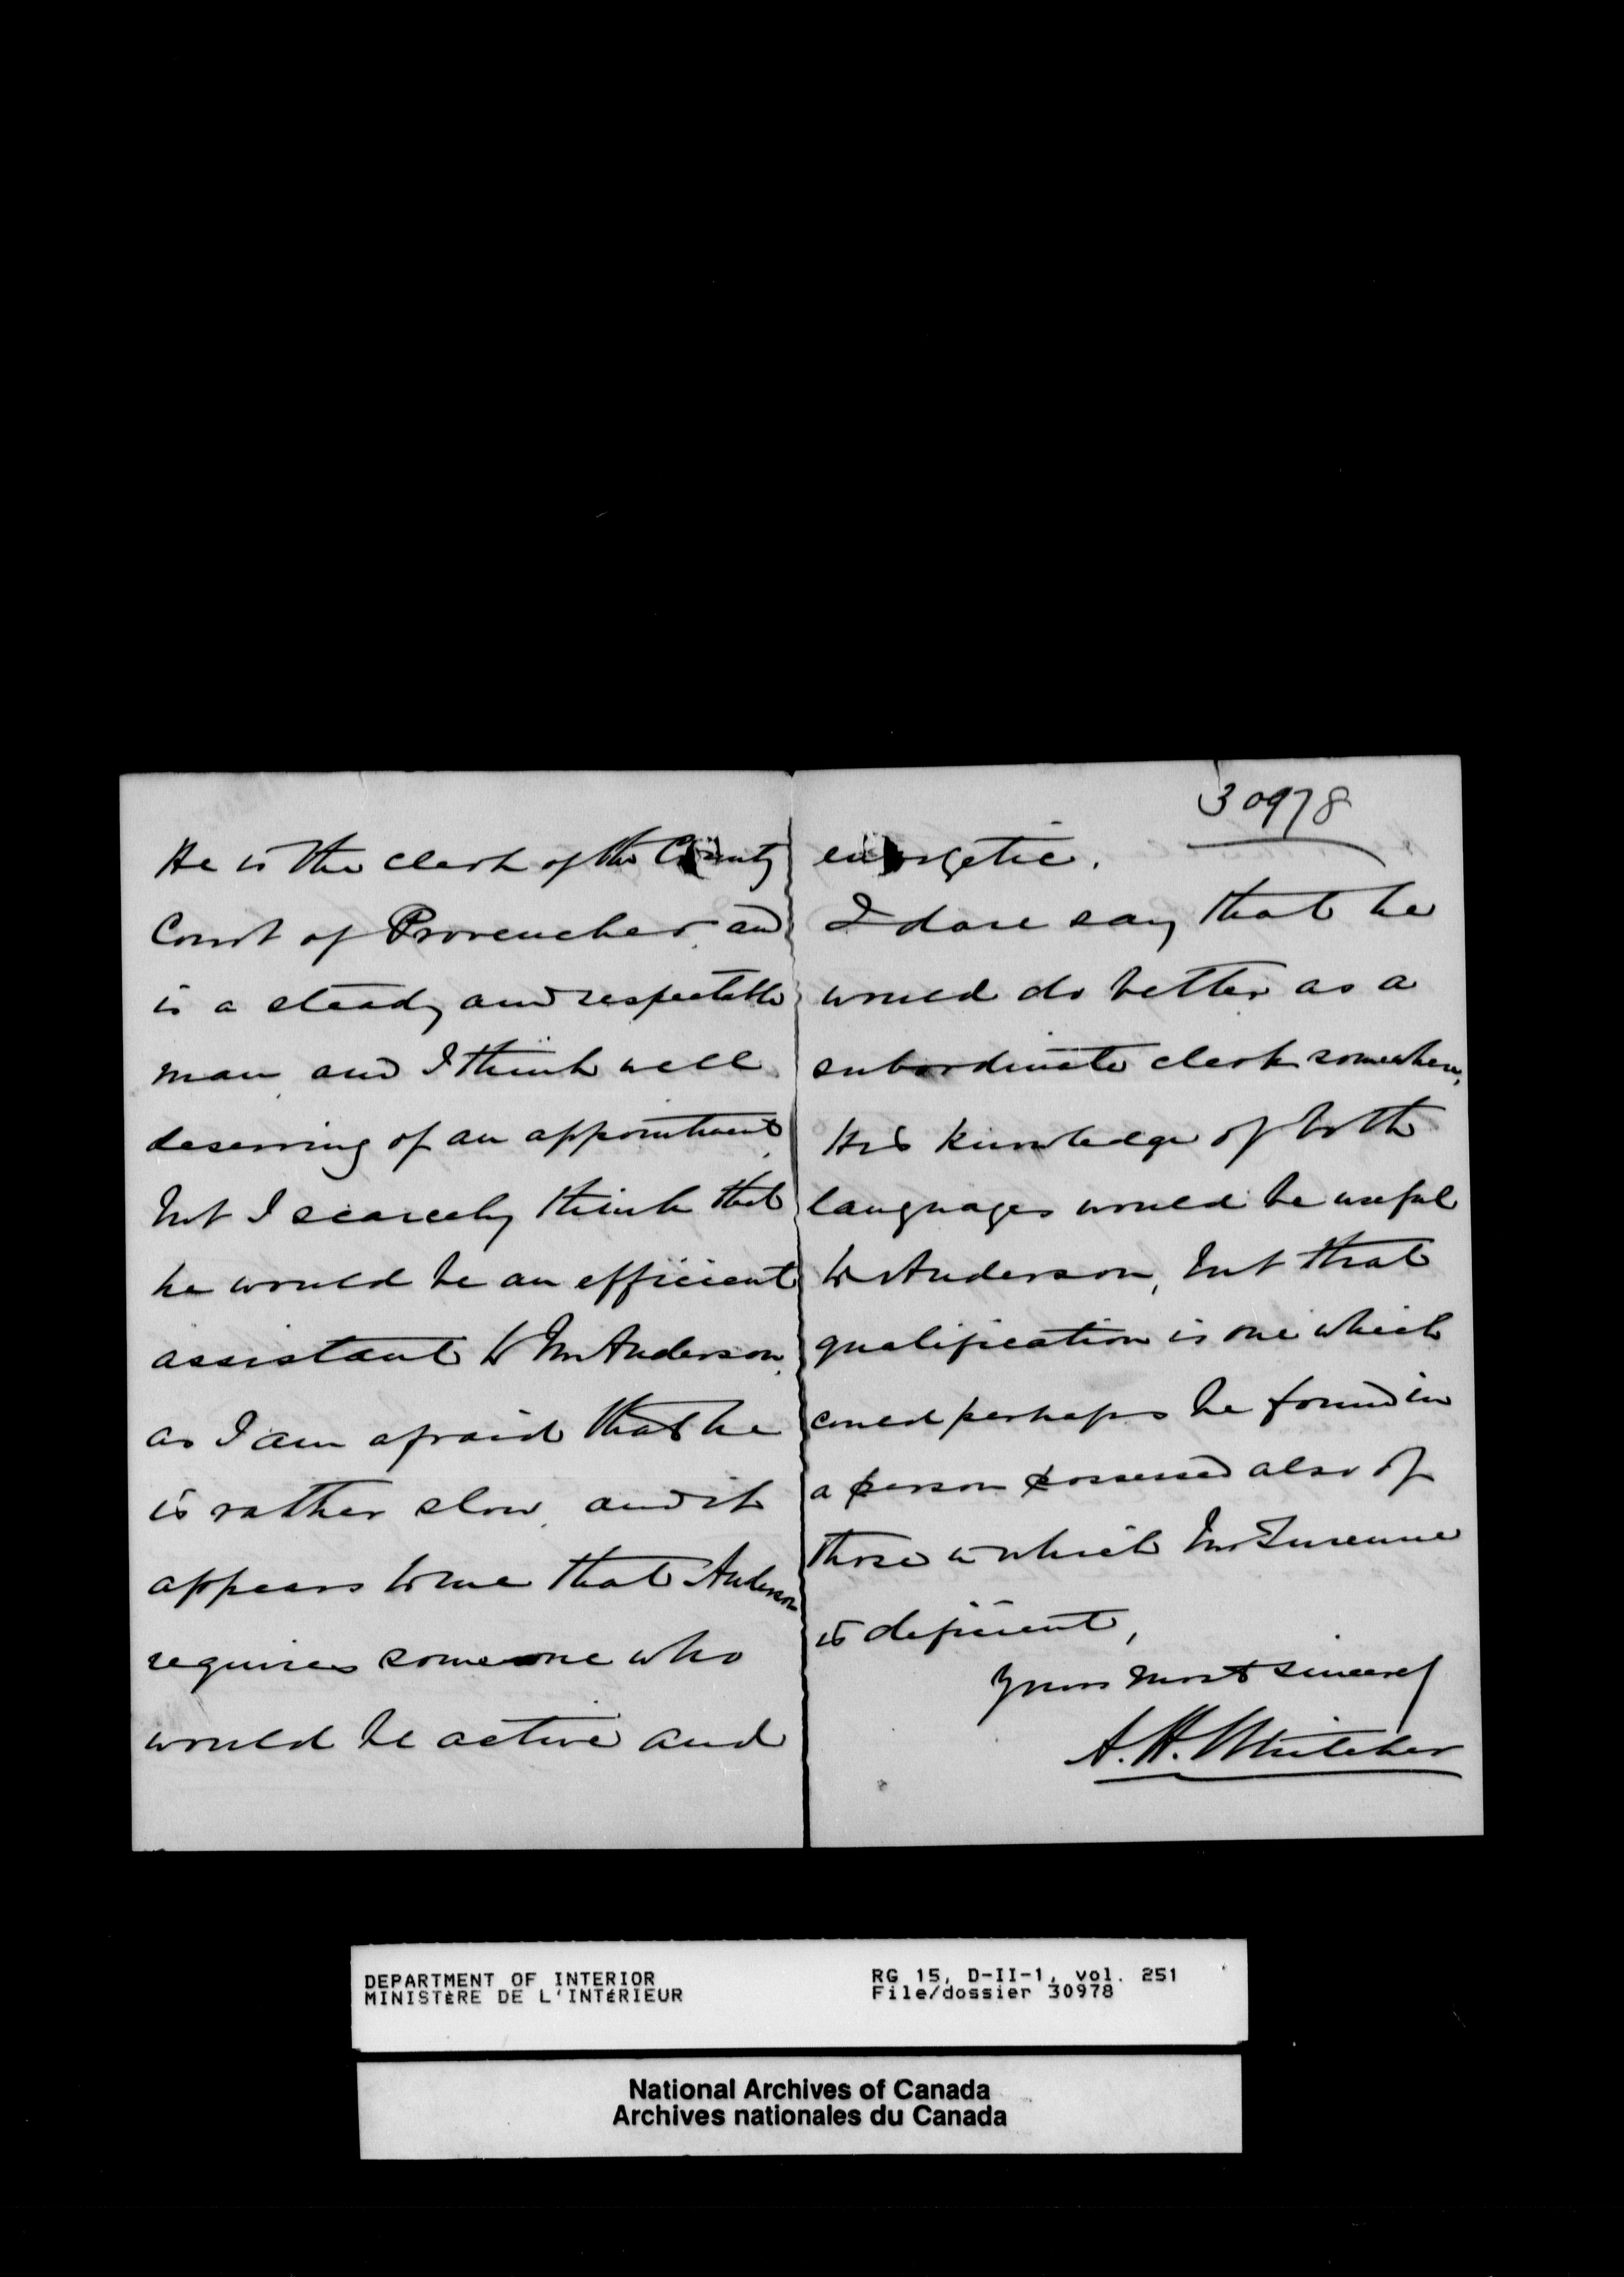 He is the clerk of the County
Court of Provencher and
is a steady and respectable
man and I think well
deserving of an appointment,
but I scarcely think that
he would be an efficient
assistant to Mr Anderson,
as I am afraid that he
is rather slow, and it
appears to me that Anderson
requires someone who
would be active and
30978
energetic.
I dare say that he
would do better as a
subordinate clerk somewhere,
His knowledge of both
languages would be useful
to Anderson, but that
qualification is one which
could perhaps be found in
a person possessed also of
those in which Mr Turenne
is deficient,
Yours most sincerely
A. H. Whitcher
DEPARTMENT OF INTERIOR
MINISTÈRE DE L'INTÉRIEUR
RG 15, D-II-1, vol. 251
File/dossier 30978
National Archives of Canada
Archives nationales du Canada